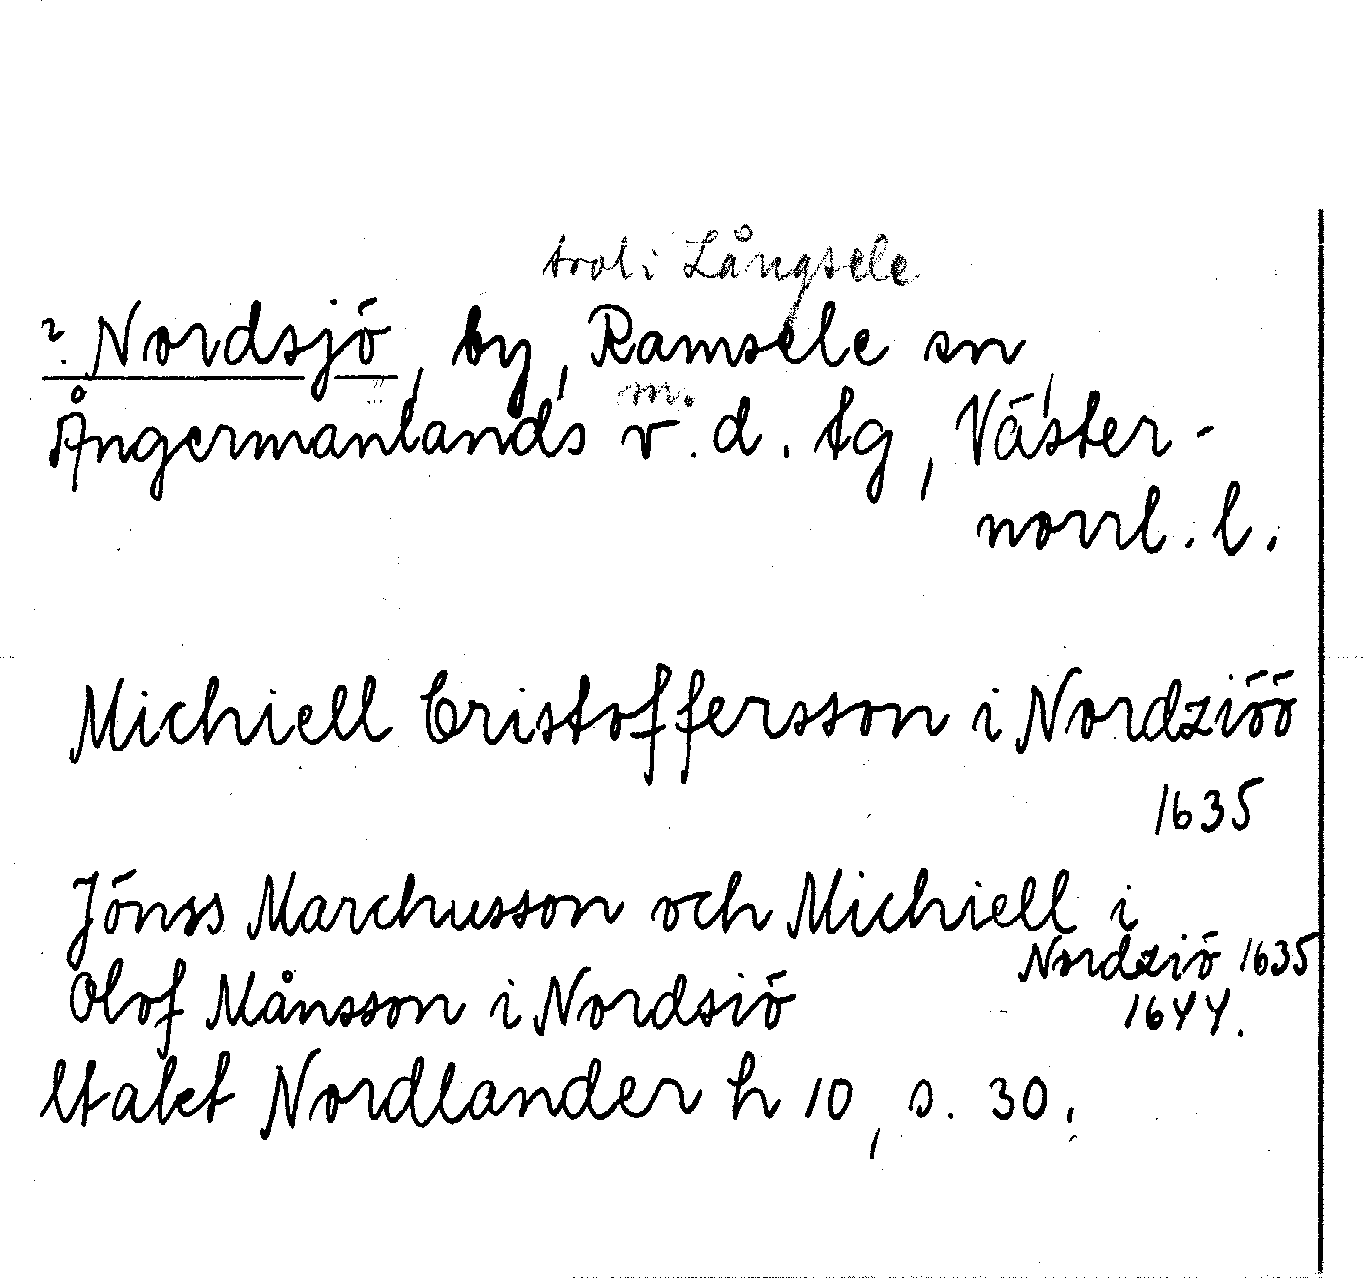 trol. i Långsele
? Nordsjö, by, Ramsele sn,
m.
Ångermanlands v. d. tg, Väster-
norrl. l.
Michiell Cristoffersson i Nordziöö
1635
Jönss Marchusson och Michiell i
Nordziö 1635
Olof Månsson i Nordsiö 1644.
Utakt Nordlander h 10, s. 30.